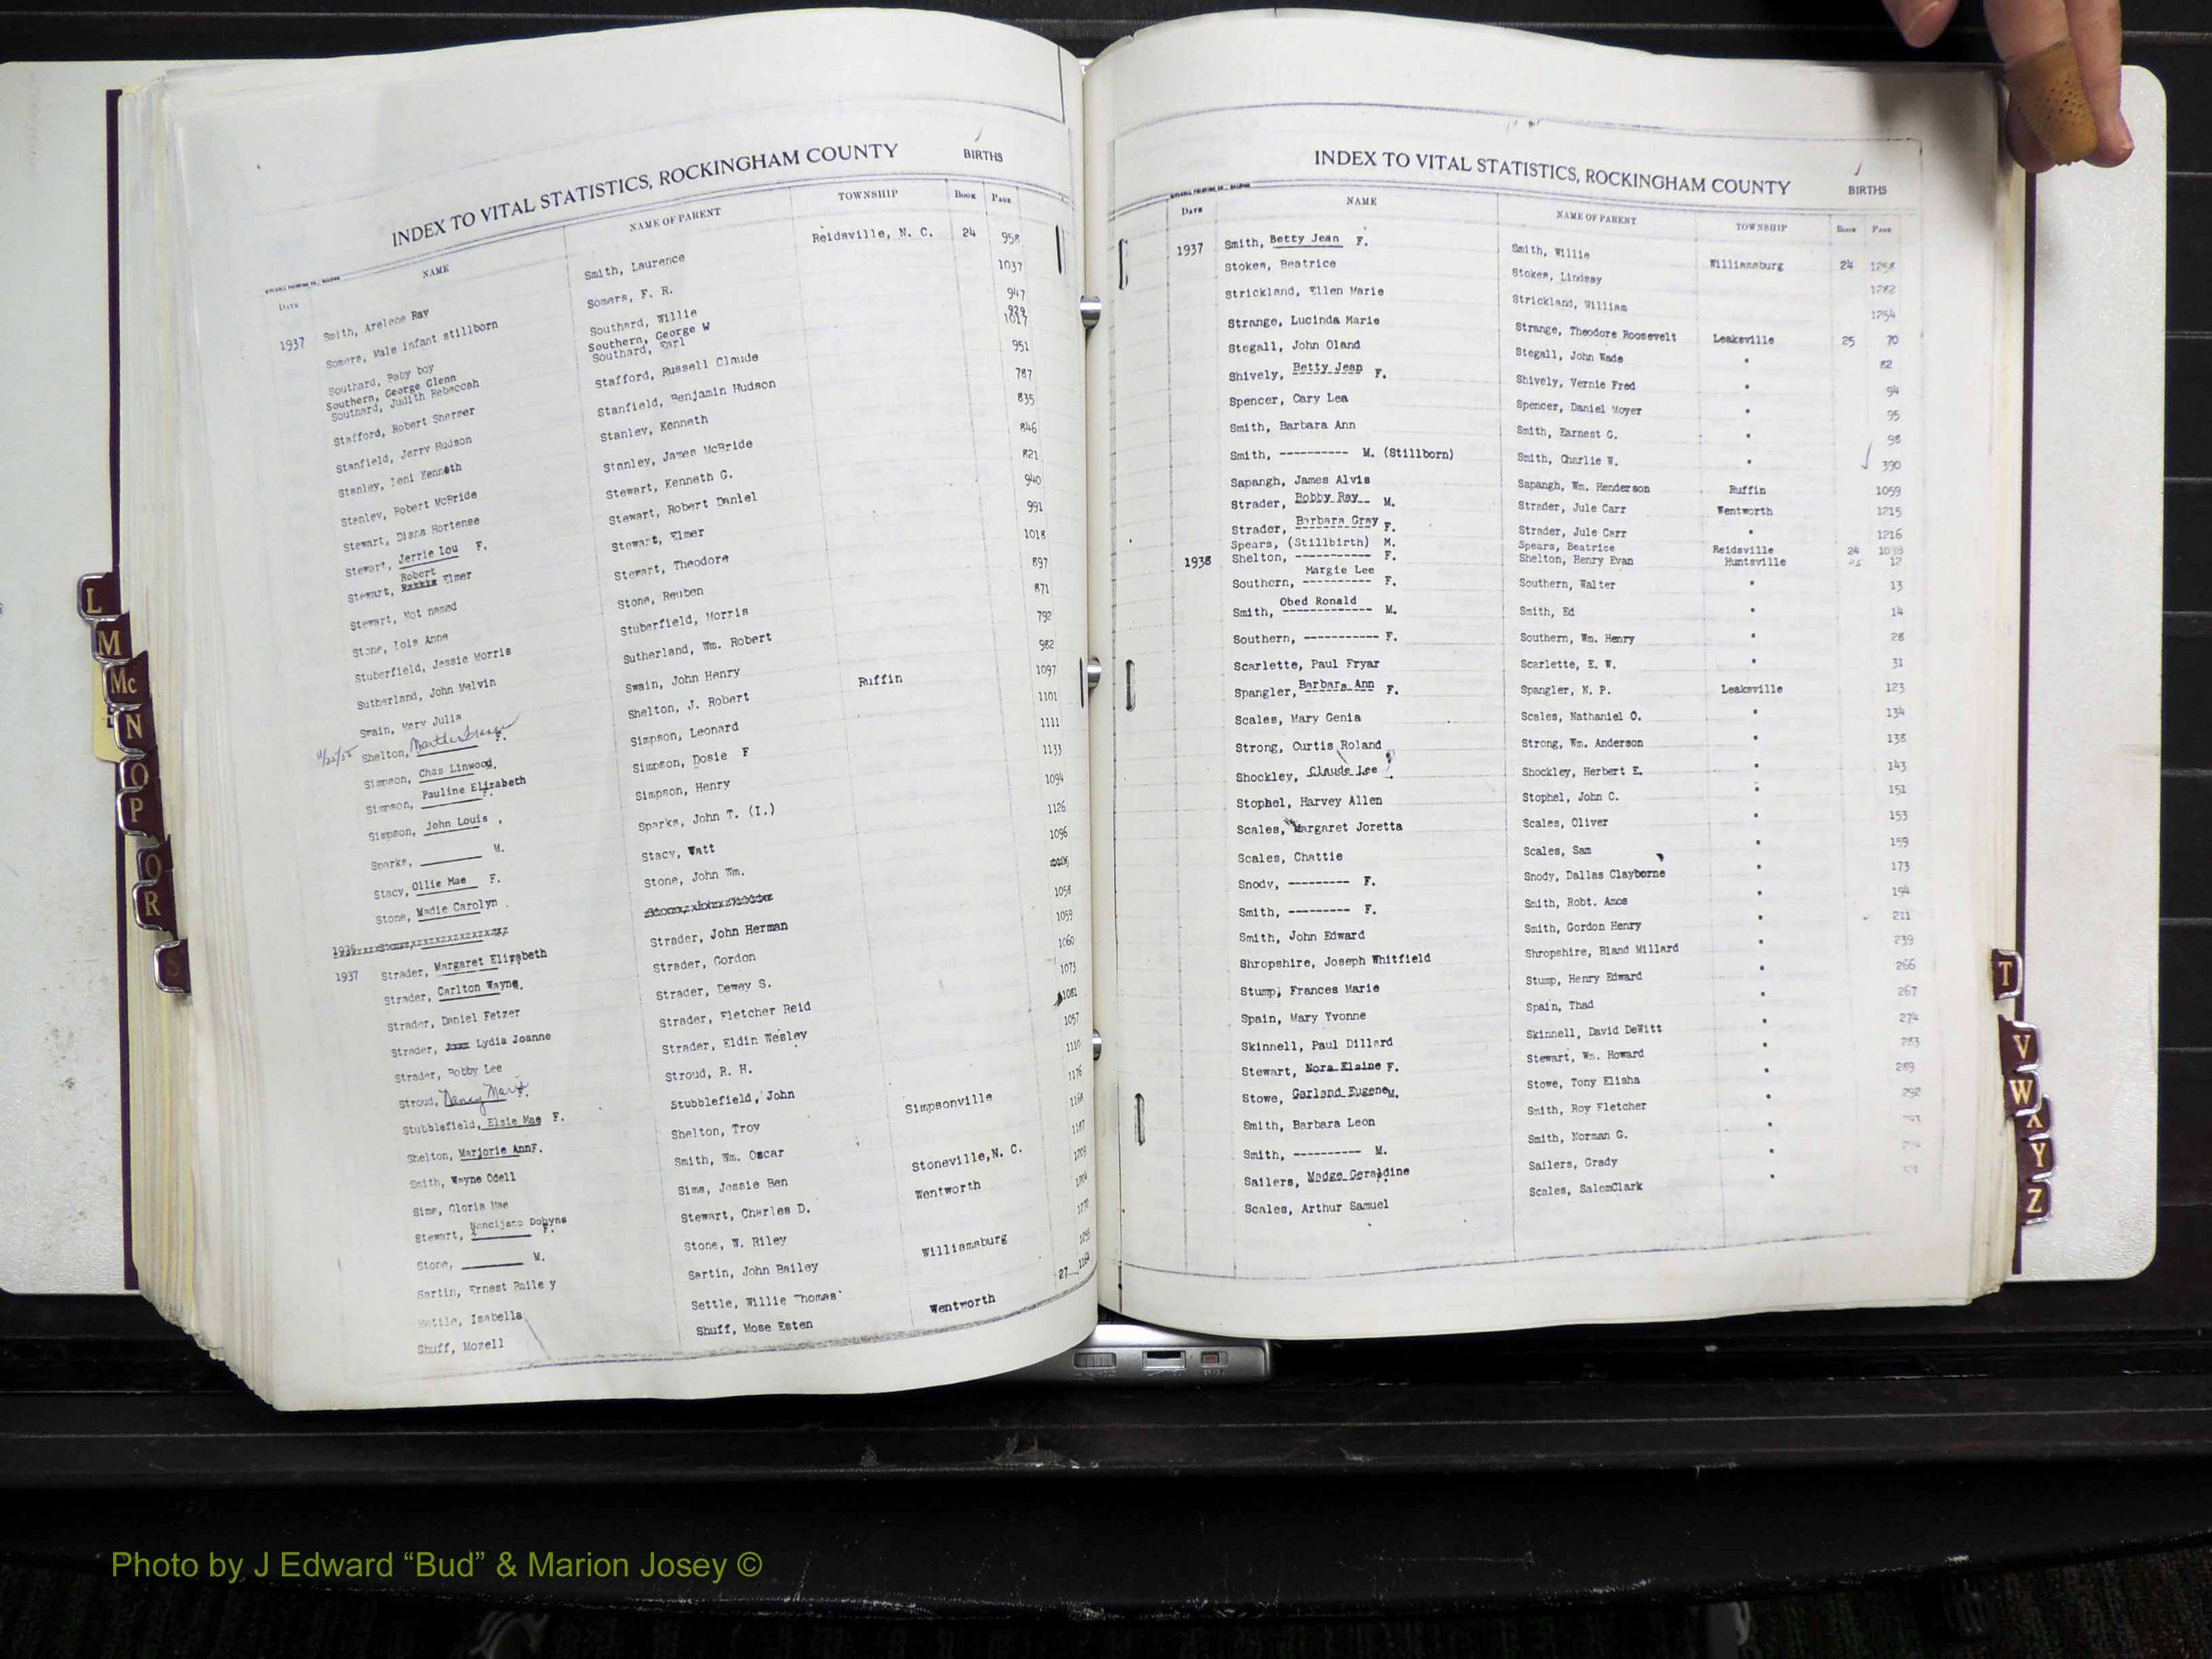 INDEX TO VITAL STATISTICS, ROCKINGHAM COUNTY BIRTHS
DATE NAME NAME OF PARENT TOWNSHIP BOOK PAGE
1937 Smith, Arelene Ray Smith, Laurence Reidsville, N. C. 24 958
Somers, Male infant stillborn Somers, F. R. 1037
Southard, Baby boy Southard, Willie 947
Southern, George Glenn Southern, George W 929
Southard, Judith Rebeccah Southard, Earl 1017
Stafford, Robert Shermer Stafford, Russell Claude 951
Stanfield, Jerry Hudson Stanfield, Benjamin Hudson 787
Stanley, Kenneth Stanley, Kenneth 835
Stanley, Robert McBride Stanley, James McBride 846
Stewart, Diana Hortense Stewart, Kenneth G. 821
Stewart, Jerrie Lou F. Stewart, Robert Daniel 940
Stewart, Robert Elmer Stewart, Elmer 991
Stewart, Not named Stewart, Theodore 1018
Stone, Lois Anne Stone, Reuben 897
Stuberfield, Jessie Morris Stuberfield, Morris 871
Sutherland, John Melvin Sutherland, Wm. Robert 792
Swain, Mary Julia Swain, John Henry 982
11/25/55 Shelton, F. Shelton, J. Robert Ruffin 1097
Simpson, Chas Linwood. Simpson, Leonard 1101
Simpson, Pauline Elizabeth F. Simpson, Dosie F 1111
Simpson, John Louis Simpson, Henry 1133
Sparks, M. Sparks, John T. (I.) 1094
Stacy, Ollie Mae F. Stacy, Watt 1126
Stone, Madie Carolyn Stone, John Wm. 1096
1937 Strader, Margaret Elizabeth Strader, John Herman 1058
Strader, Carlton Wayne. Strader, Gordon 1059
Strader, Daniel Fetzer Strader, Dewey S. 1060
Strader, Lydia Joanne Strader, Fletcher Reid 1073
Strader, Bobby Lee Strader, Eldin Wesley 1081
Stroud, Nancy Marie F. Stroud, R. H. 1057
Stubblefield, Elsie Mae F. Stubblefield, John 1110
Shelton, Marjorie Ann F. Shelton, Troy Simpsonville 1176
Smith, Wayne Odell Smith, Wm. Oscar 1168
Sims, Gloria Mae Sims, Jessie Ben Stoneville, N. C. 1187
Stewart, Nancijane Dobyns F. Stewart, Charles D. Wentworth
Stone, M. Stone, W. Riley
Sartin, Ernest Bailey Sartin, John Bailey Williamsburg
Settle, Isabella Settle, Willie Thomas
Shuff, Mozell Shuff, Mose Esten Wentworth 27
INDEX TO VITAL STATISTICS, ROCKINGHAM COUNTY BIRTHS
DATE NAME NAME OF PARENT TOWNSHIP BOOK PAGE
1937 Smith, Betty Jean F. Smith, Willie Williamsburg 24 1258
Stokes, Beatrice Stokes, Lindsay 1282
Strickland, Ellen Marie Strickland, William 1254
Strange, Lucinda Marie Strange, Theodore Roosevelt Leaksville 25 70
Stegall, John Oland Stegall, John Wade " 82
Shively, Betty Jean F. Shively, Vernie Fred " 94
Spencer, Cary Lea Spencer, Daniel Moyer " 95
Smith, Barbara Ann Smith, Earnest G. " 98
Smith, ---------- M. (Stillborn) Smith, Charlie W. " 390
Sapangh, James Alvis Sapangh, Wm. Henderson Ruffin 1059
Strader, Bobby Ray M. Strader, Jule Carr Wentworth 1215
Strader, Barbara Gray F. Strader, Jule Carr " 1216
Spears, (Stillbirth) M. Spears, Beatrice Reidsville 24
1938 Shelton, ----------- F. Shelton, Henry Evan Huntsville 12
Southern, Margie Lee F. Southern, Walter " 13
Smith, Obed Ronald M. Smith, Ed " 14
Southern, ----------- F. Southern, Wm. Henry " 28
Scarlette, Paul Fryar Scarlette, E. W. " 31
Spangler, Barbara Ann F. Spangler, N. P. Leaksville 123
Scales, Mary Genia Scales, Nathaniel O. " 134
Strong, Curtis Roland Strong, Wm. Anderson " 138
Shockley, Claude Lee Shockley, Herbert E. " 143
Stophel, Harvey Allen Stophel, John C. " 151
Scales, Margaret Joretta Scales, Oliver " 153
Scales, Chattie Scales, Sam " 159
Snody, --------- F. Snody, Dallas Clayborne " 173
Smith, --------- F. Smith, Robt. Amos " 194
Smith, John Edward Smith, Gordon Henry " 211
Shropshire, Joseph Whitfield Shropshire, Bland Millard " 239
Stump, Frances Marie Stump, Henry Edward " 266
Spain, Mary Yvonne Spain, Thad " 267
Skinnell, Paul Dillard Skinnell, David DeWitt " 274
Stewart, Nora Elaine F. Stewart, Wm. Howard " 283
Stowe, Garland Eugene M. Stowe, Tony Elisha " 289
Smith, Barbara Leon Smith, Roy Fletcher " 292
Smith, ---------- M. Smith, Norman G. "
Sailers, Madge Geraldine Sailers, Grady "
Scales, Arthur Samuel Scales, SalemClark "
L
M
Mc
N
O
P
Q
R
S
T
V
W
X
Y
Z
Photo by J Edward “Bud” & Marion Josey ©